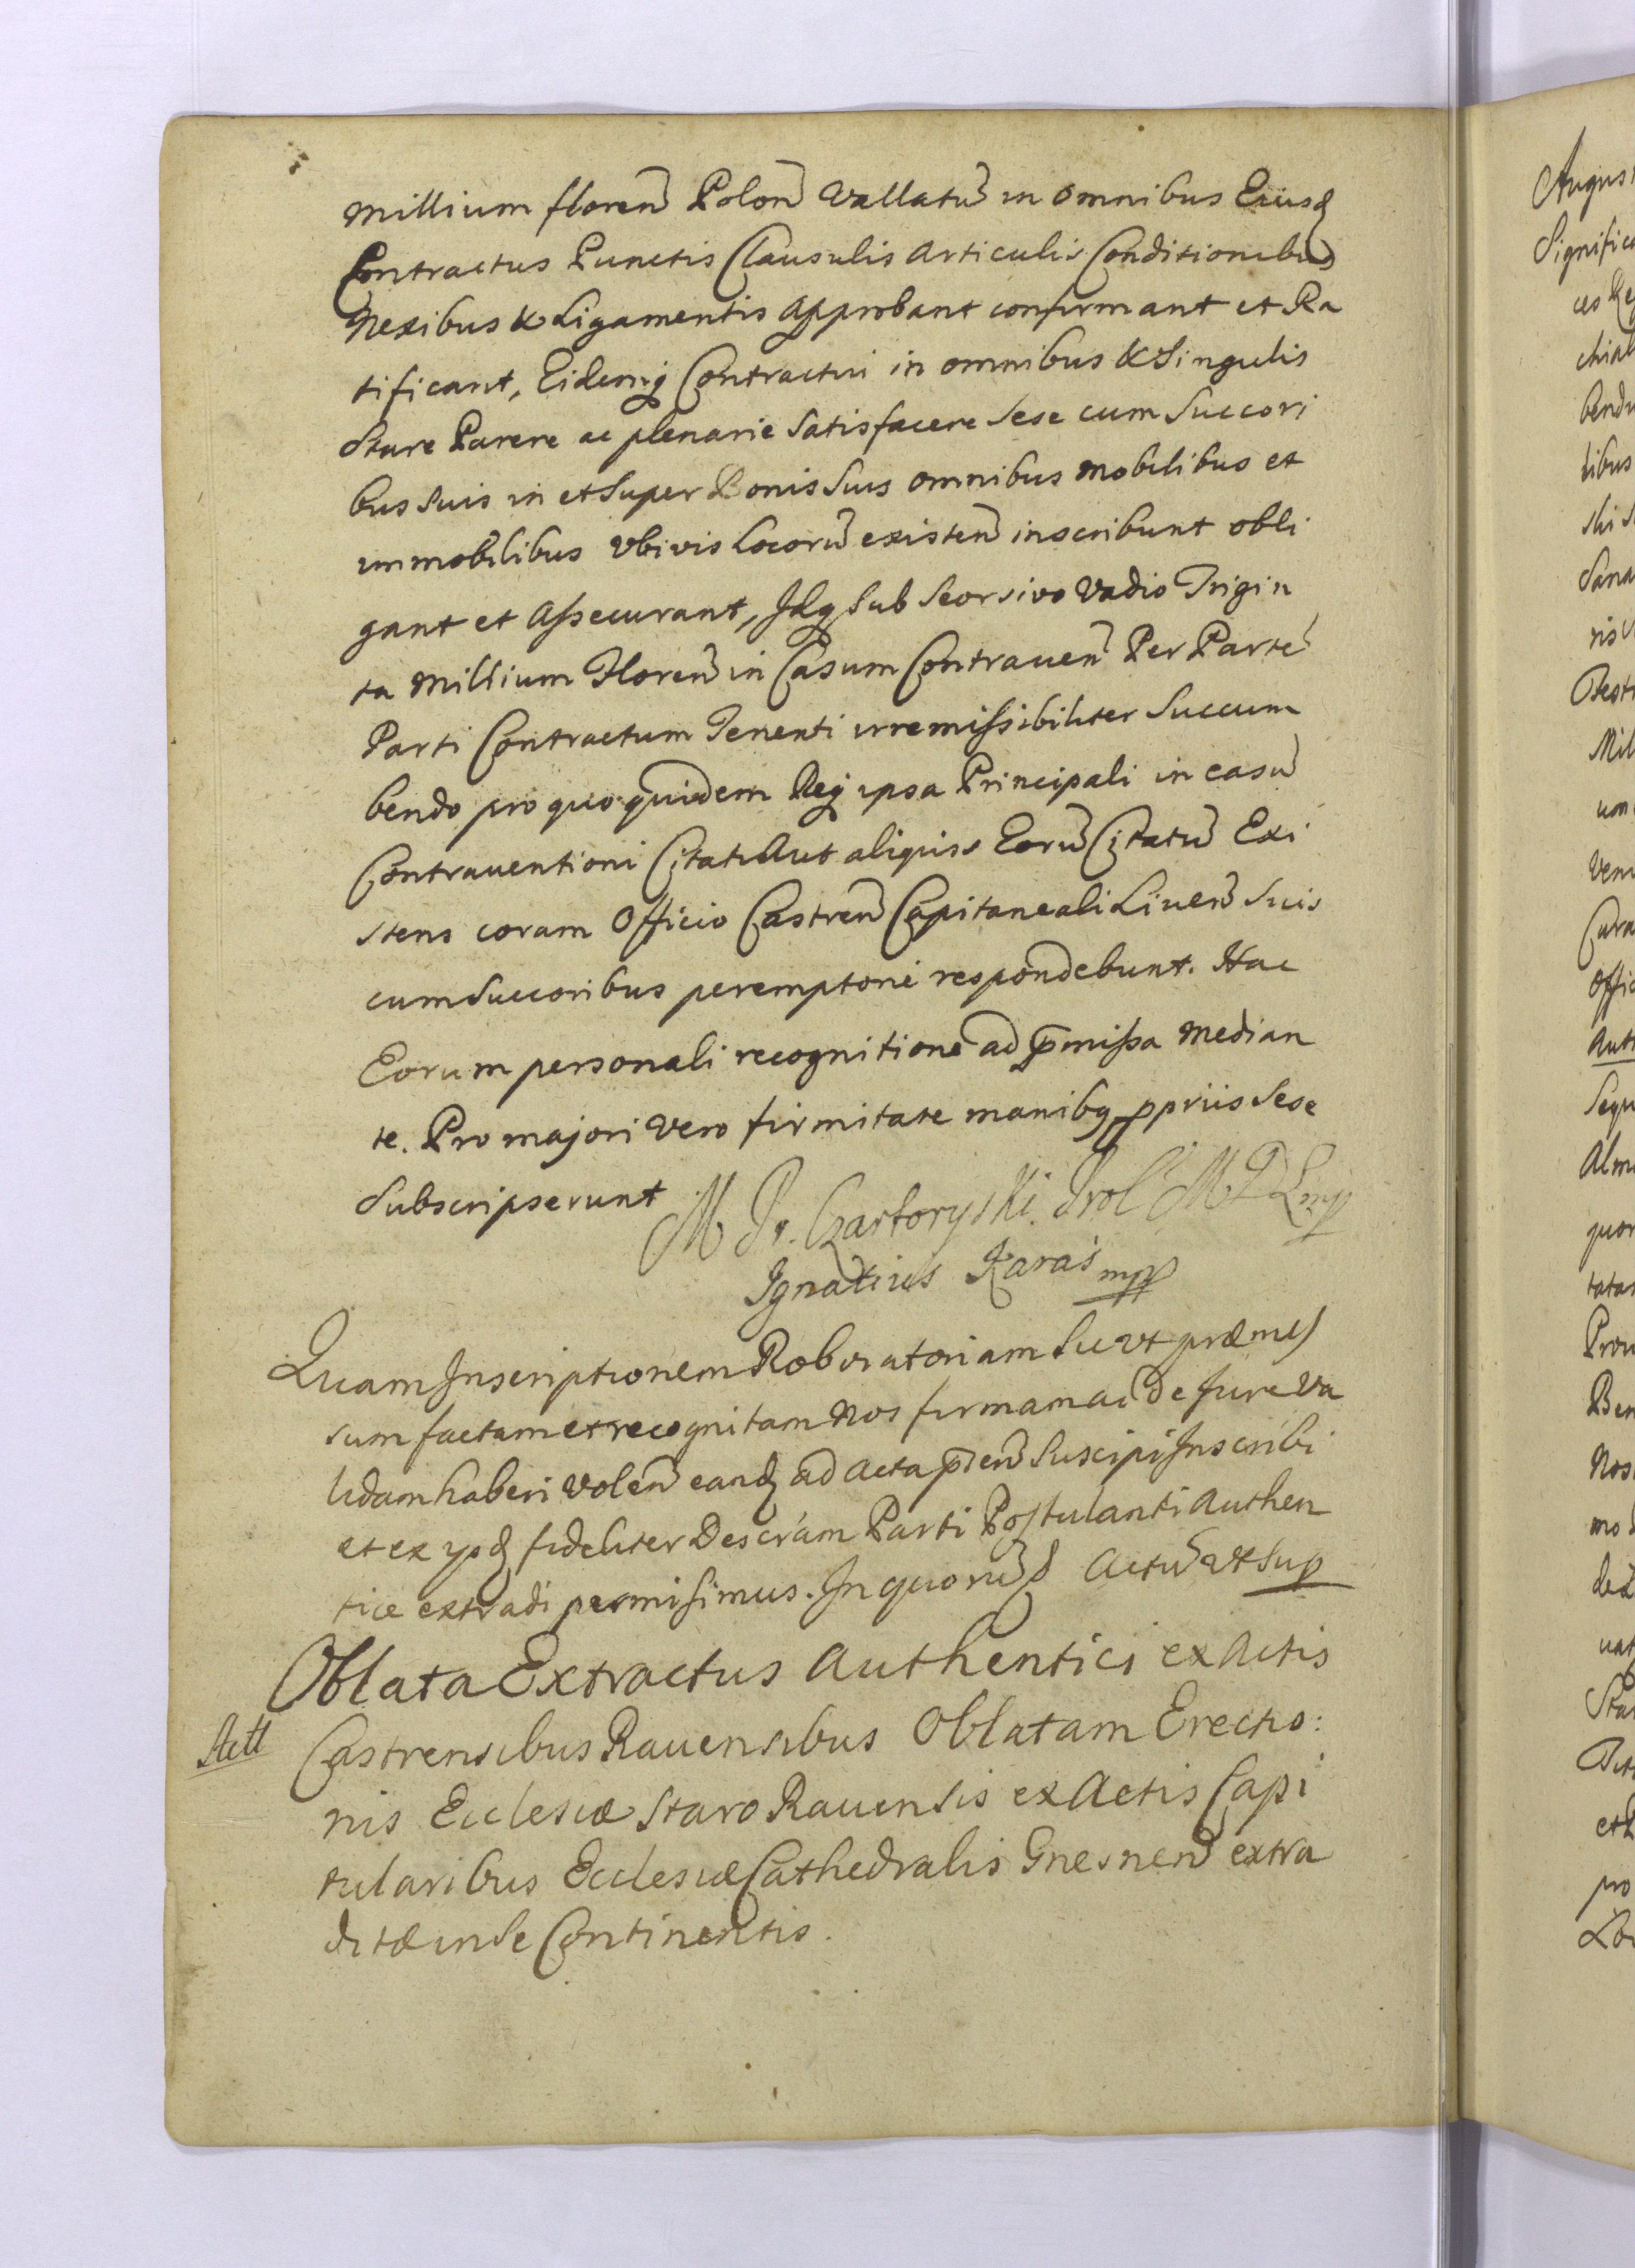 Millium floren̄ Polon̄ Vallatu̅ in omnibus Eiusq
Contractus Punctis Clausulis Articulis Conditionibus
Nexibus & Ligamentis Approbant confirmant et Ra
tificant, Eidemq Contractui in omnibus & Singulis
Stare Parere ac plenarie Satisfacere Sese cum Succori
bus Suis in et Super Bonis Suis omnibus mobilibus et
immobilibus Ubivis Locoru̅ existen̄ inscribunt obli
gant et Assecurant, Idq Sub Seorsivo Vadio Trigin
ta Millium Floren̄ in Casum Contrauen̄ Per Parte̅
Parti Contractum Tenenti irremissibiliter Succum
bendo pro quo quidem Req ipsa Principali in casu̅
Contrauentioni Citati Aut aliquis Eoru̅ Citatu̅ Exi
stens coram Officio Castren̄ Capitaneali Liuen̄ Suis
cum Succoribus peremptorie respondebunt. Hac
Eorum personali recognitione ad p̅missa Median
te. Pro majori Vero firmitate manibq ppriis Sese
Subscripserunt M Pr. Czartoryski. M D L mpp
Ignatius Karaś mpp
Quam Inscriptionem Roboratoriam Sic ut præmes
sum factam et recognitam Nos firmam ac de Jure Va
lidam haberi Volen̄ eandq ad Acta p̅ren̄ Suscipi Inscribi
et ex ysdq fideliter Descr̅am Parti Postulanti Authen
tice extradi permisimus. In quoru̅ Actu̅ Ut Sup
Oblata Extractus Authentici ex Actis
Castrensibus Rauensibus Oblatam Erectio:
nis Ecclesiæ Staro Rauensis ex Actis Capi
tularibus Ecclesiæ Cathedralis Gnesnen̄ extra
ditæ in Se Continentis.
Augus
Signific